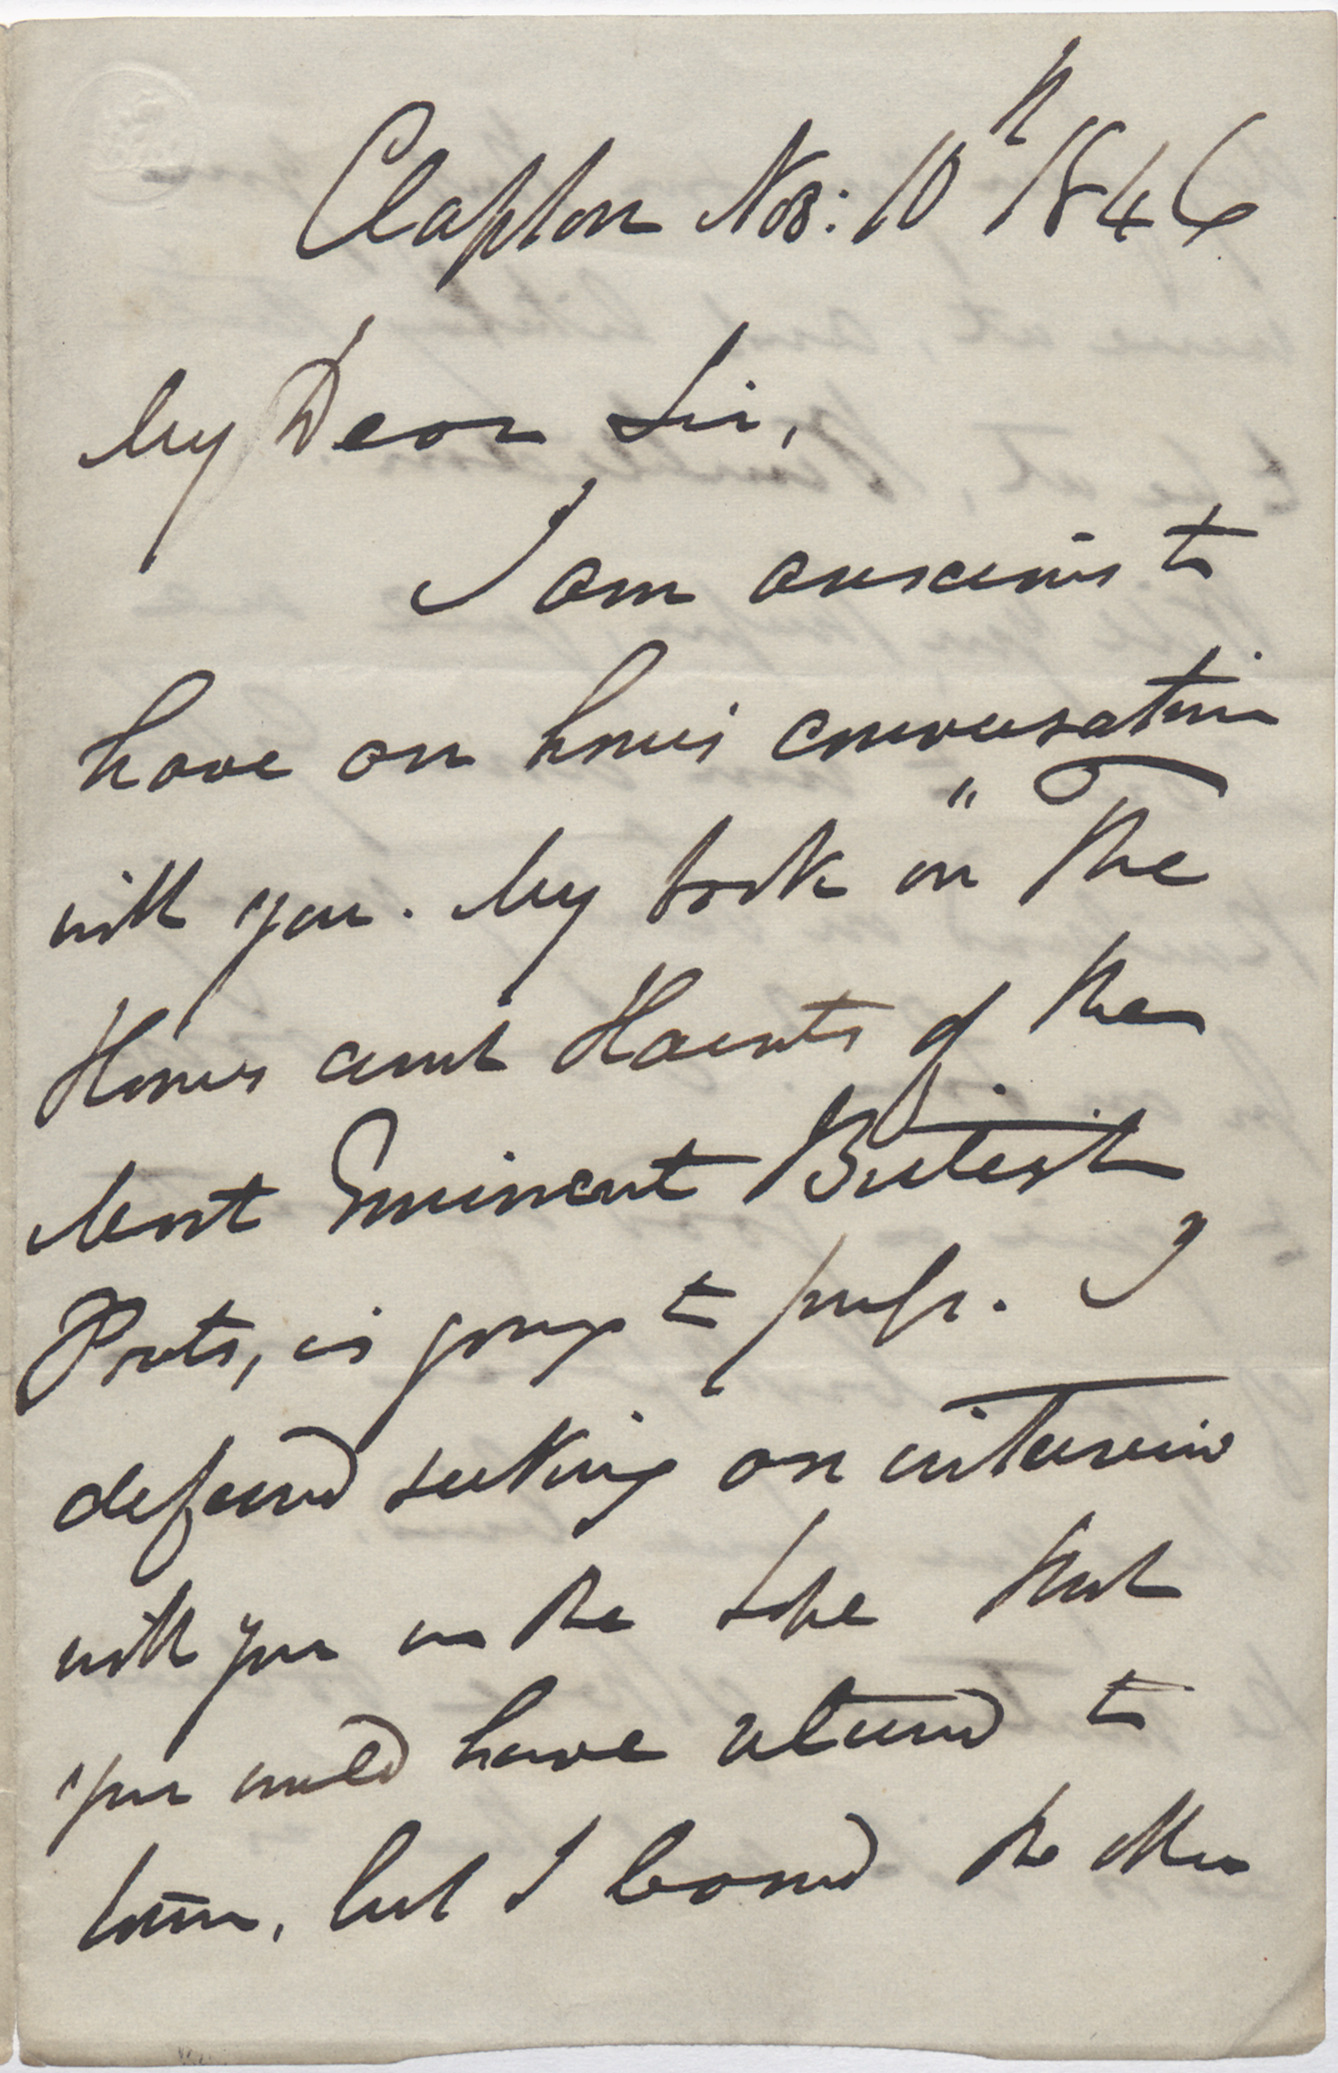 Clapton Nov: 10th 1846
My Dear Sir,
I am anxious to
have an hour's conversation
with you. My book on "The
Homes and Haunts of the
Most Eminent British
Poets, is going to press. I
deferred seeking an interview
with you in the hope that
you would have returned to
town, but I learned the other